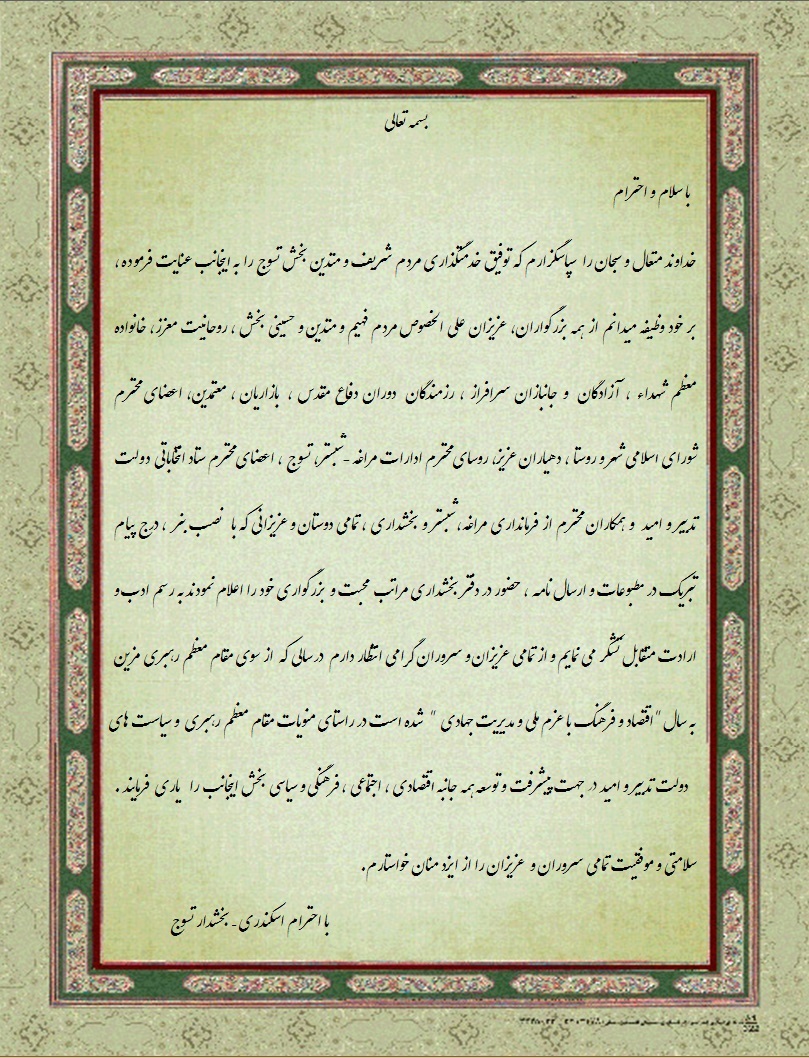 بسمه تعالی
با سلام و احترام
خداوند متعال و سبحان را سپاسگزارم که توفیق خدمتگذاری مردم شریف و متدین بخش تسوج را به اینجانب عنایت فرموده ،
بر خود وظیفه میدانم از همه بزرگواران، عزیزان علی الخصوص مردم فهیم و متدین و حسینی بخش ، روحانیت معزز، خانواده
معظم شهداء ، آزادگان و جانبازان سرافراز ، رزمندگان دوران دفاع مقدس ، بازاریان ، معتمدین، اعضای محترم
شورای اسلامی شهر و روستا ، دهیاران عزیز، روسای محترم ادارات مراغه -شبستر، تسوج ، اعضای محترم ستاد انتخاباتی دولت
تدبیر و امید و همکاران محترم از فرمانداری مراغه، شبستر و بخشداری ، تمامی دوستان و عزیزانی که با نصب بنر ، درج پیام
تبریک در مطبوعات و ارسال نامه ، حضور در دفتر بخشداری مراتب محبت و بزرگواری خود را اعلام نمودند به رسم ادب و
ارادت متقابل تشکر می نمایم و از تمامی عزیزان و سروران گرامی انتظار دارم در سالی که از سوی مقام معظم رهبری مزین
به سال "اقتصاد و فرهنگ با عزم ملی و مدیریت جهادی " شده است در راستای منویات مقام معظم رهبری و سیاست های
دولت تدبیر و امید در جهت پیشرفت و توسعه همه جانبه اقتصادی ، اجتماعی ، فرهنگی و سیاسی بخش اینجانب را یاری فرمایند .
سلامتی و موفقیت تمامی سروران و عزیزان را از ایزد منان خواستارم.
با احترام اسکندری- بخشدار تسوج